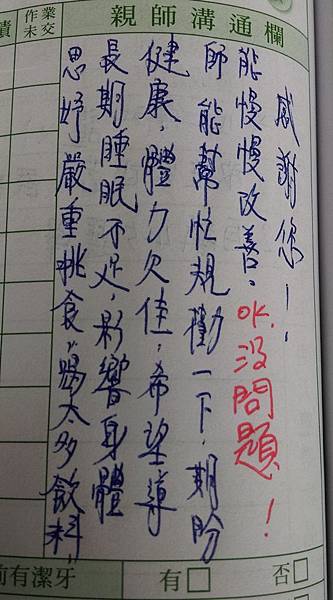 作業
未交
親師溝通欄
思妤嚴重挑食，喝太多飲料，
長期睡眠不足，影響身體
健康，體力欠佳，希望導
師能幫忙規勸一下，期盼
能慢慢改善。OK，沒問題！
感謝您！
前有潔牙 有□ 否□